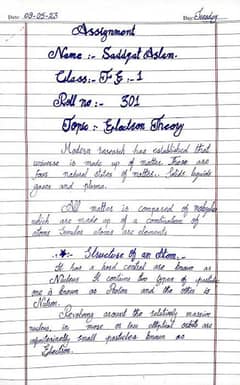 Date: 09-05-23 Day: Tuesday
Assignment
Name :- Saddqat Aslam.
Class:- F E - 1
Roll no :- 301
Topic :- Electson Theory
Modern research has established that
universe is made up of matter. These are
four natural states of matter. Solids liquids
gases and plasma.
All matter is compased of molecules
which are made up of a combination of
atoms
atoms are elements
Structure of an Atom :-
It has a hard central are known as
Nucleus. It contains two types of particle
one is known as Proton and the other is
Revolving around the relatively massive
nucleus, in more or less elliptical orbits are
infinitesimally small particles known as
Electron.